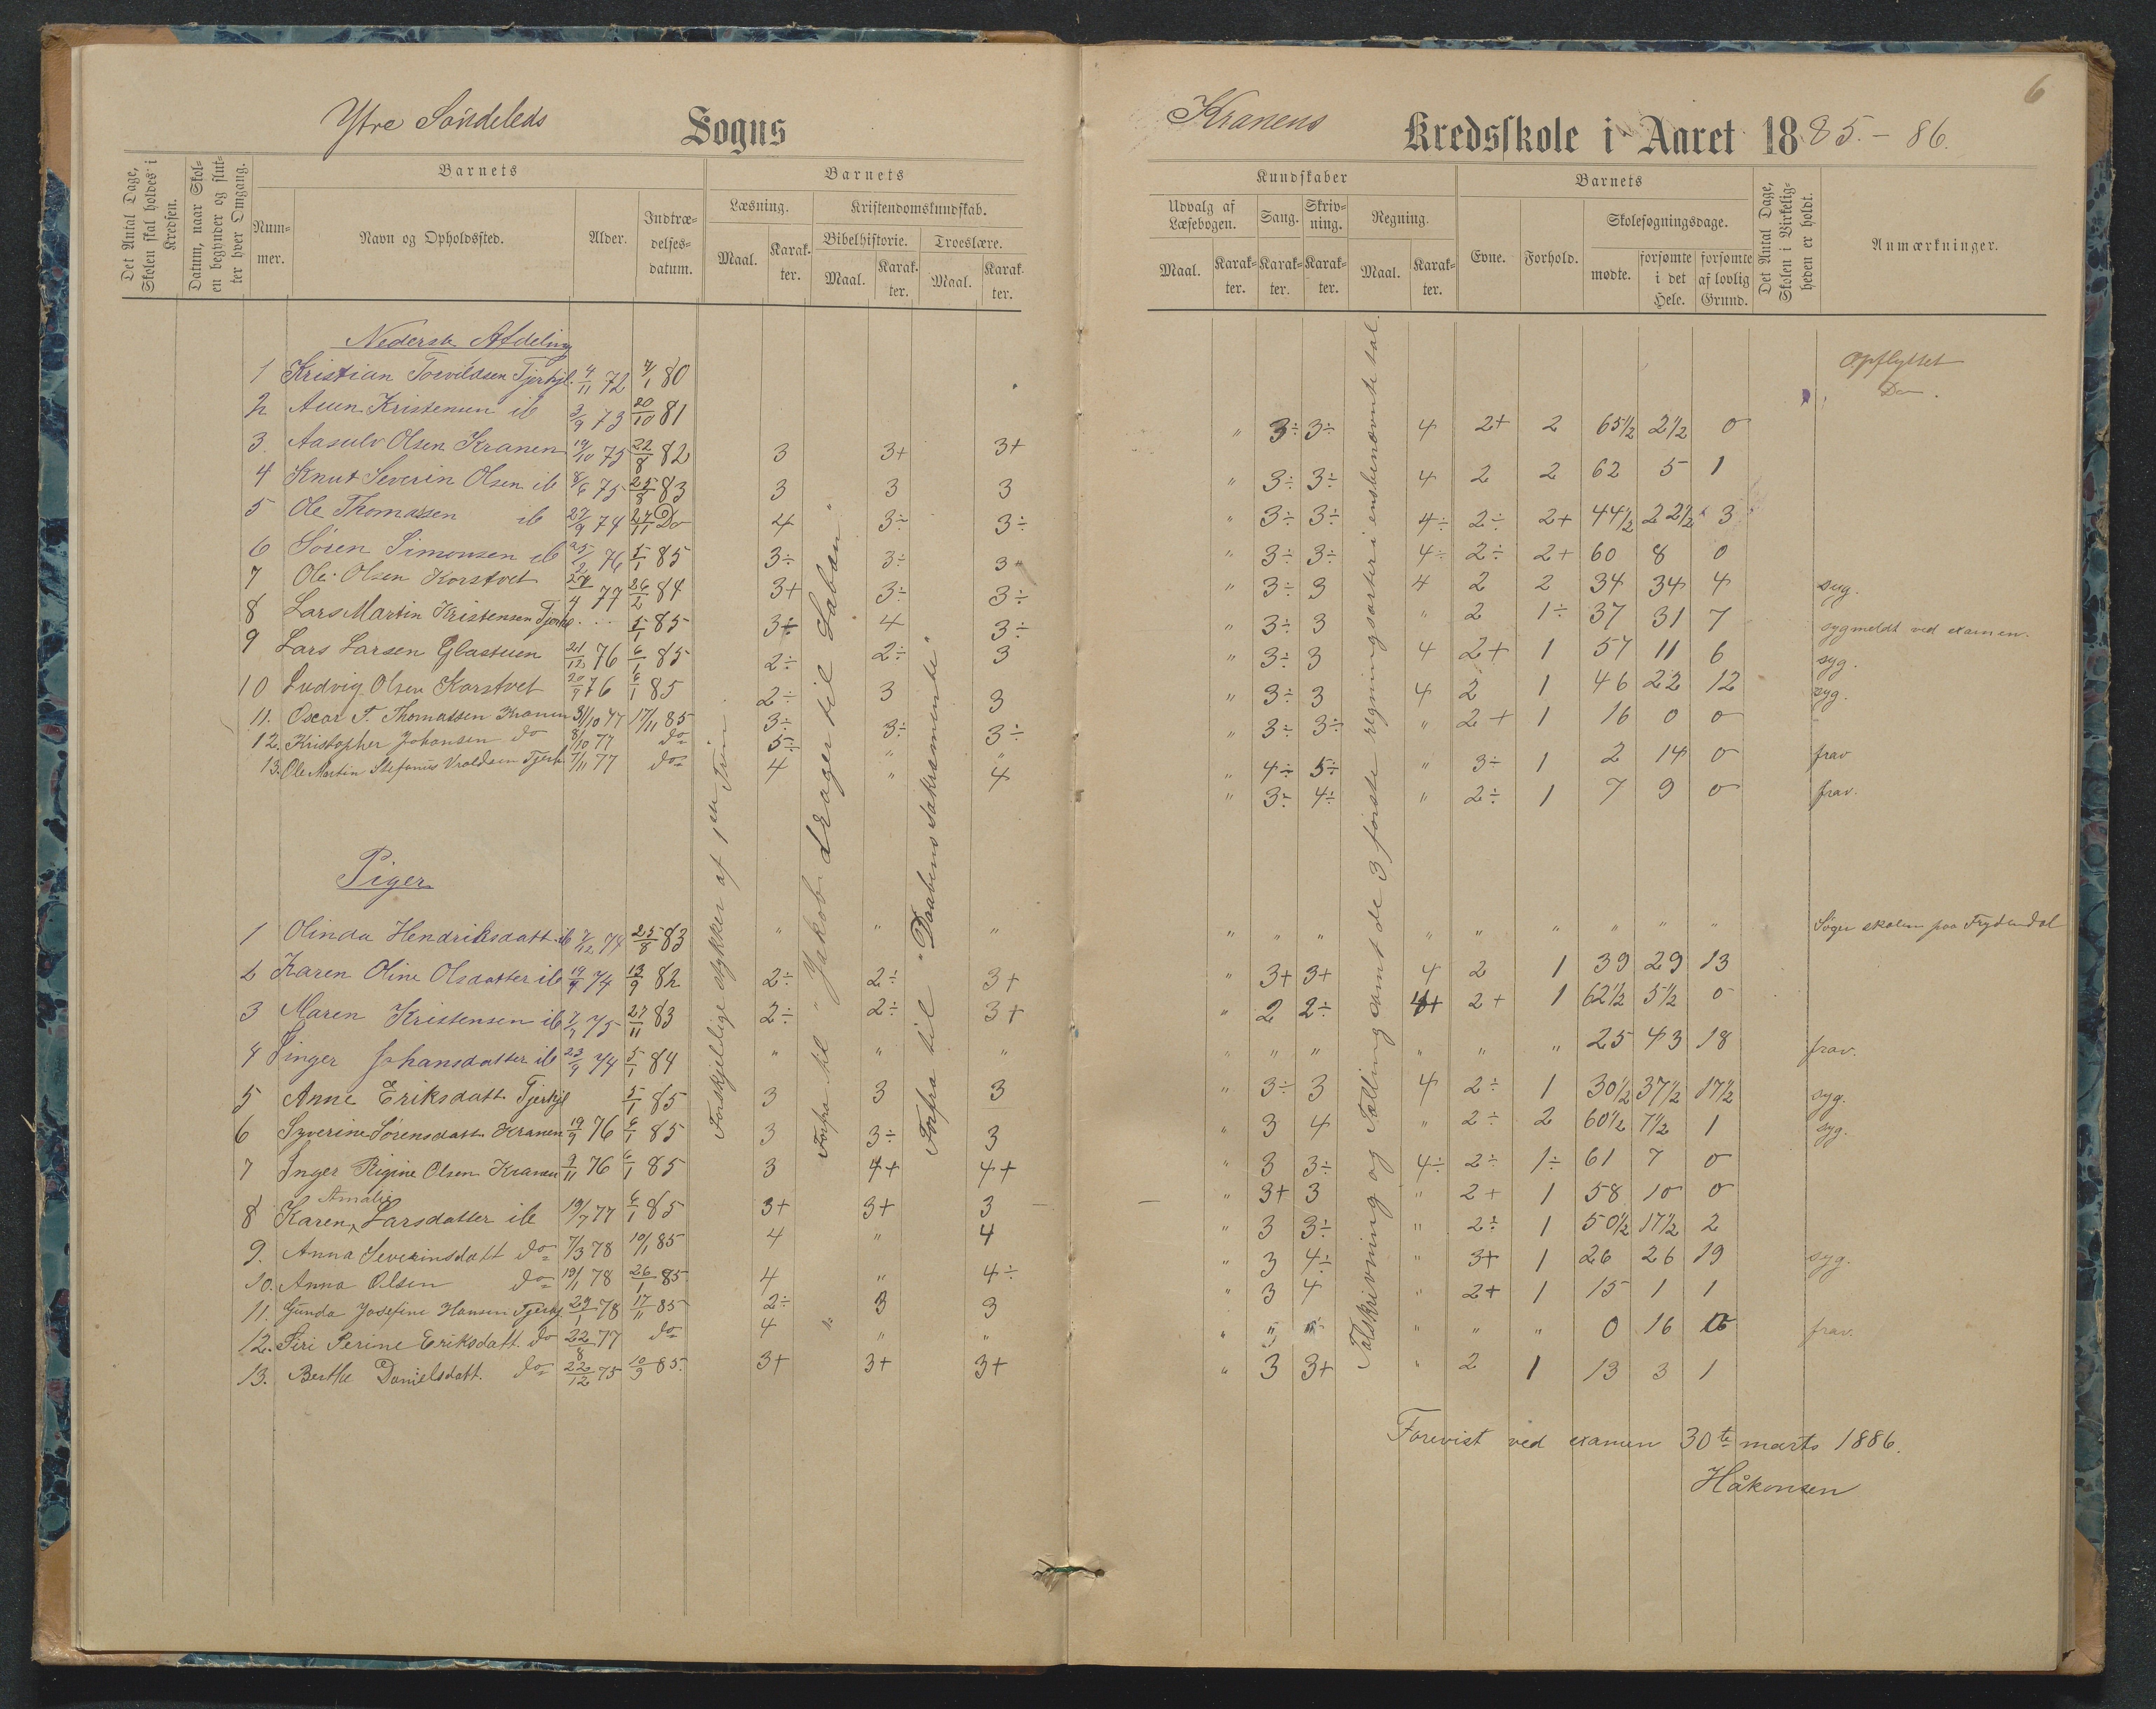 Ytre Söndeleds Sogns
Kranens Kredsskole i Aaret 1885.-86.
6
Det Antal Dage, Skolen skal holdes i Kredsen.
Datum, naar Skolen begynder og slutter hver Omgang.
Barnets
Nummer.
Navn og Opholdssted.
Alder.
Indtrædelsesdatum.
Barnets
Læsning.
Maal.
Karakter.
Kristendomskundskab.
Bibelhistorie.
Maal.
Karakter.
Troeslære.
Maal.
Karakter.
Kundskaber
Udvalg af Læsebogen.
Maal.
Karakter.
Sang.
Karakter.
Skrivning.
Karakter.
Regning.
Maal.
Karakter.
Barnets
Evne.
Forhold.
Skolesøgningsdage.
mødte.
forsømte i det Hele.
forsømte af lovlig Grund.
Det Antal Dage, Skolen i Virkeligheden er holdt.
Anmærkninger.
Forskjellige stykker af 1ste trin.
Forfra til "Jakob drager til Laban"
Forfra til "Daabens sakramente"
Talskrivning og Tælling samt de 3 første regningsarter i ensbenævnte tal.
Nederste Afdeling
1 Kristian Torvildsen Tjerkjl. 4/11 72 7/1 80 Opflyttet
2 Aun Kristensen ib 3/9 73 20/10 81 Do.
3. Aasulv Olsen Kranen 19/10 75 22/8 82 3 3+ 3+ " 3÷ 3÷ 4 2+ 2 65½ 2½ 0
4 Knut Severin Olsen ib 8/6 75 25/8 83 3 3 3 " 3÷ 3÷ 4 2 2 62 5 1
5 Ole Thomassen ib 27/9 74 27/11 Do 4 3÷ 3÷ " 3÷ 3÷ 4÷ 2÷ 2+ 44½ 22½ 3
6 Sören Simonsen ib 25/2 76 5/1 85 3÷ 3÷ 3 " 3÷ 3÷ 4÷ 2÷ 2+ 60 8 0
7 Ole Olsen Korstvet 24/4 77 26/2 84 3+ 3÷ 3÷ " 3÷ 3 4 2 2 34 34 4 syg.
8 Lars Martin Kristensen Tjerkjl. 5/1 85 3÷ 4 3÷ " 3÷ 3 " 2 1÷ 37 31 7 sygmeldt ved examen.
9 Lars Larsen Glastuen 21/12 76 6/1 85 2÷ 2÷ 3 " 3÷ 3 4 2+ 1 57 11 6 syg.
10 Ludvig Olsen Korstvet 20/9 76 6/1 85 2÷ 3 3 " 3÷ 3 4 2 1 46 22 12 syg.
11. Oscar T. Thomassen Kranen 31/10 77 17/11 85 3÷ 3÷ 3÷ " 3÷ 3÷ " 2+ 1 16 0 0
12. Kristopher Johansen do 8/10 77 do 5÷ " " " 4÷ 5÷ " 3÷ 1 2 14 0 frav
13. Ole Martin Stefanus Vroldsen Tjerk. 7/11 77 do 4 " 4 " 3÷ 4÷ " 2÷ 1 7 9 0 frav.
Piger
1 Olinda Hendriksdatt. ib 7/12 74 25/8 83 " " " " " " " " " " " " Söger skolen paa Frydendal
2 Karen Oline Olsdatter ib 19/4 74 13/9 82 2÷ 2÷ 3+ " 3+ 3+ 4 2 1 39 29 13
3 Maren Kristensen ib 7/7 75 27/11 83 2÷ 2÷ 3+ " 2 2÷ 4+ 2+ 1 62½ 5½ 0
4 Singer Johansdatter ib 23/9 74 5/1 84 " " " " " " " " " 25 43 18 frav.
5 Anne Eriksdatt. Tjerkjl 5/1 85 3 3 3 " 3÷ 3 4 2÷ 1 30½ 37½ 17½ syg.
6 Syverine Sörensdatt. Kranen 19/9 76 6/1 85 3 3÷ 3 " 3 4 " 2÷ 2 60½ 7½ 1 syg.
7 Inger Rigine Olsen Kranen 9/11 76 6/1 85 3 4+ 4+ " 3 3÷ 4÷ 2÷ 1÷ 61 7 0
8 Karen Amalie Larsdatter ib 19/7 77 6/1 85 3+ 3+ 3 " 3+ 3 " 2+ 1 58 10 0
9. Anna Severinsdatt do 7/3 78 10/1 85 4 " 4 " 3 3÷ " 2÷ 1 50½ 17½ 2
10. Anna Olsen do 19/1 78 26/1 85 4 " 4÷ " 3 4÷ " 3+ 1 26 26 19 syg.
11. Gunda Josefine Hansen Tjerkj. 29/1 78 17/11 85 2÷ 3 3 " 3 4 " 2+ 1 15 1 1
12. Siri Perine Eriksdatt. do 22/8 77 do 4 " " " " " " " " 0 16 frav.
13. Berthe Danielsdatt. do 22/12 75 10/3 85. 3+ 3+ 3+ " 3 3+ " 2 1 13 3 1
Forevist ved examen 30te marts 1886.
Håkonsen